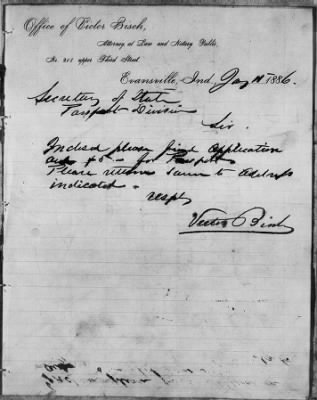 Office of Victor Bisch,
Attorney at Law and Notary Public,
No. 217 upper Third Street
Evansville, Ind., Jany 11 1886.
Secretary of State
Passport Division
Sir.
Inclosed please find Application
and $5 - for Passport
Please return same to Address
indicated -
respy
Victor Bisch